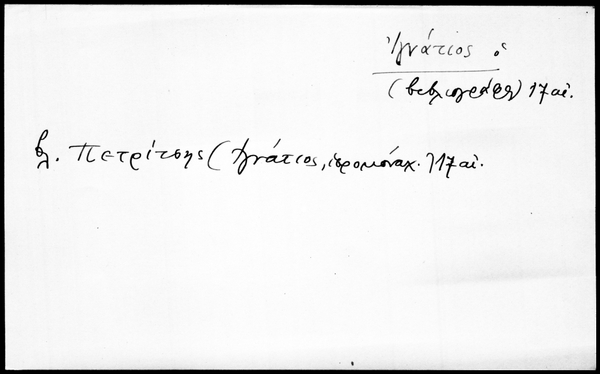 Ἰγνάτιος ὁ
(βιβλιογράφος) 17 αἰ.
βλ. Πετρίτσης (Ἰγνάτιος, ἱερομόναχ.) 17 αἰ.